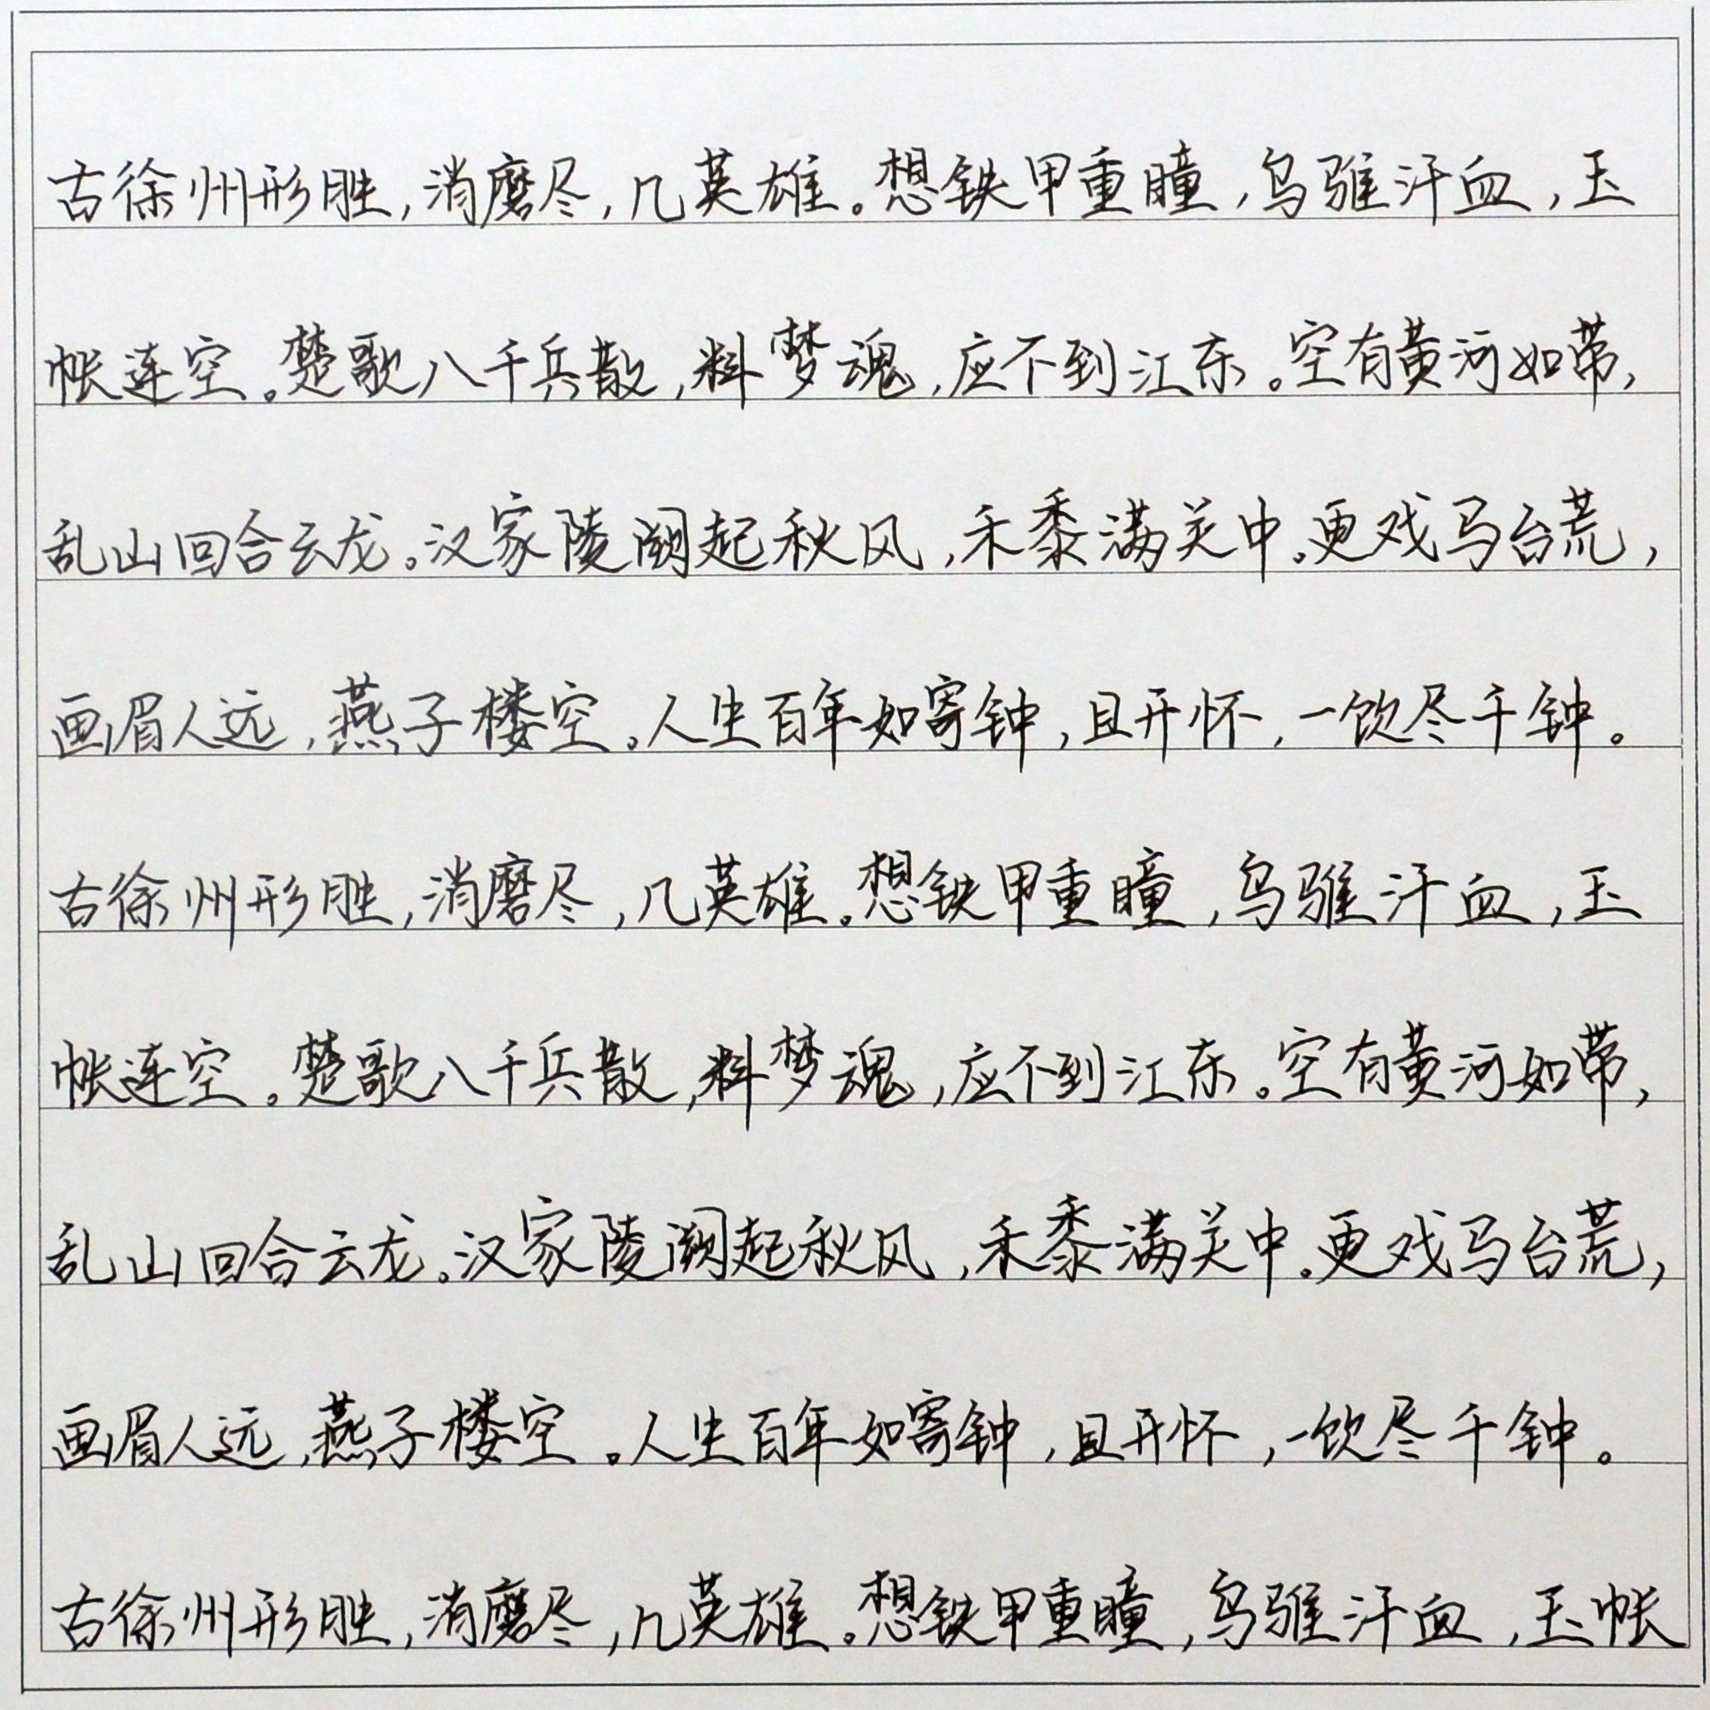 古徐州形胜,消磨尽,几英雄。想铁甲重瞳,乌骓汗血,玉
帐连空。楚歌八千兵散,料梦魂,应不到江东。空有黄河如带,
乱山回合云龙。汉家陵阙起秋风,禾黍满关中。更戏马台荒,
画眉人远,燕子楼空。人生百年如寄钟,且开怀,一饮尽千钟。
古徐州形胜,消磨尽,几英雄。想铁甲重瞳,乌骓汗血,玉
帐连空。楚歌八千兵散,料梦魂,应不到江东。空有黄河如带,
乱山回合云龙。汉家陵阙起秋风,禾黍满关中。更戏马台荒,
画眉人远,燕子楼空。人生百年如寄钟,且开怀,一饮尽千钟。
古徐州形胜,消磨尽,几英雄。想铁甲重瞳,乌骓汗血,玉帐